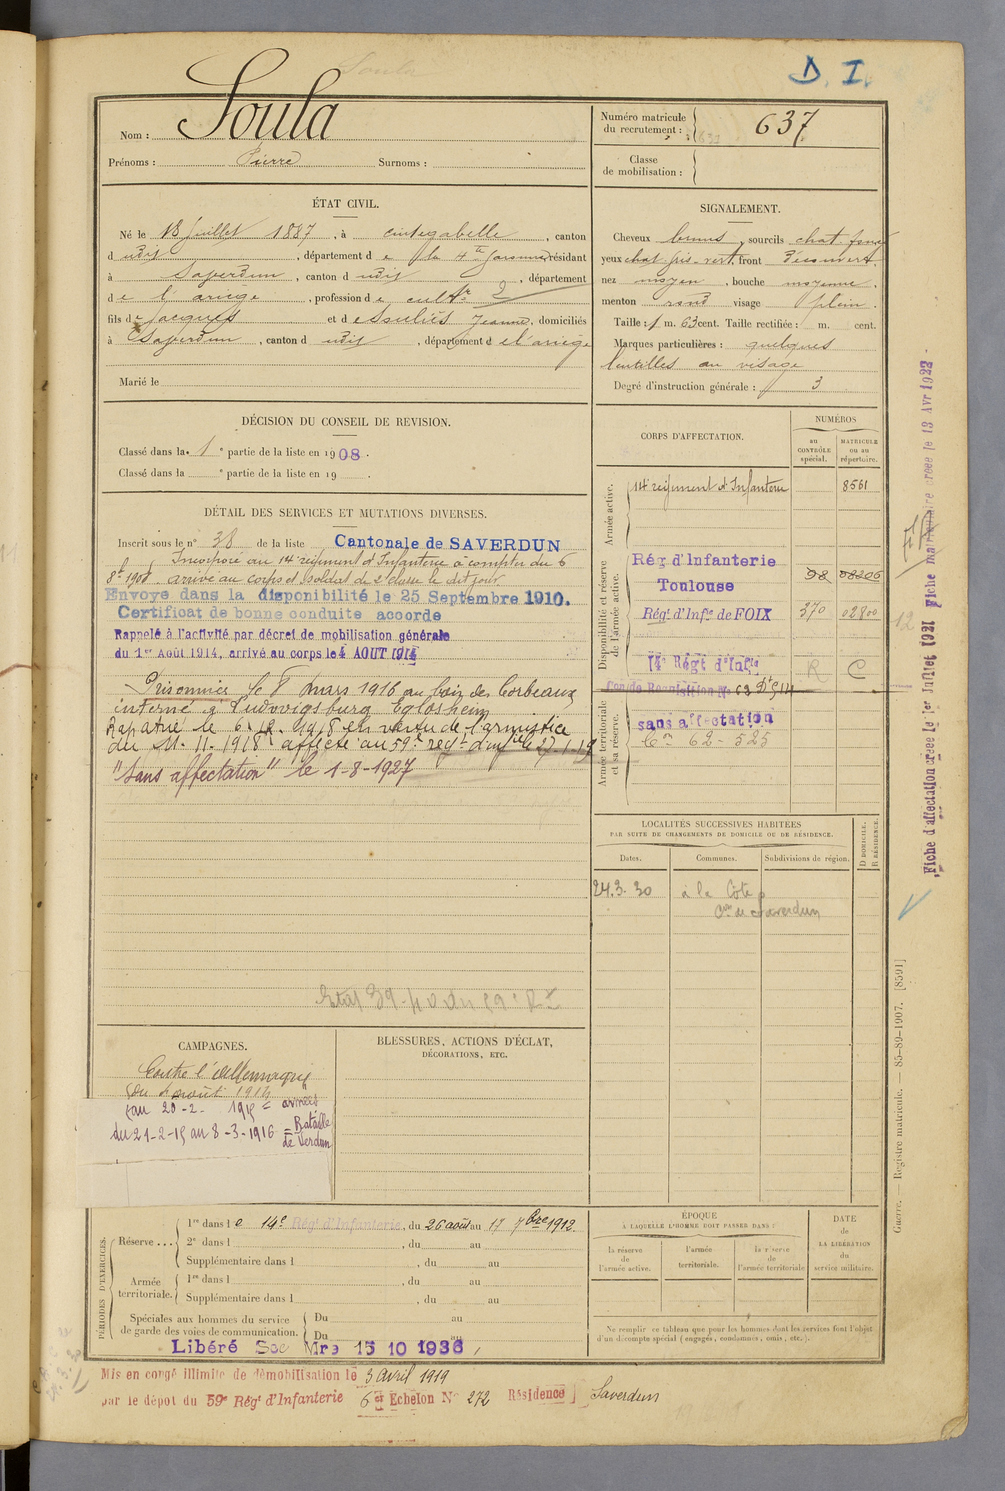 D. I.
Nom : Soula
Prénoms : Pierre Surnoms :
Numéro matricule
du recrutement : 637
Classe
de mobilisation :
ÉTAT CIVIL.
Né le 18 Juillet 1887, à Cintegabelle, canton
d udit, département de la Hte Garonne, résidant
à Saverdun, canton d udit, département
de l'ariège, profession de cultr 2
fils de Jacques et de Soulié Jeanne, domiciliés
à Saverdun, canton d udit, département de l'ariège
Marié le
SIGNALEMENT.
Cheveux bruns, sourcils chat. foncé
yeux chat. gris-vert, front découvert,
nez moyen, bouche moyenne,
menton rond visage plein.
Taille : 1 m. 63 cent. Taille rectifiée : m. cent.
Marques particulières : quelques
lentilles au visage
Degré d'instruction générale : 3
DÉCISION DU CONSEIL DE REVISION.
Classé dans la 1e partie de la liste en 1908.
Classé dans la e partie de la liste en 19 .
DÉTAIL DES SERVICES ET MUTATIONS DIVERSES.
Inscrit sous le n° 38 de la liste Cantonale de SAVERDUN
Incorporé au 14e régiment d'Infanterie à compter du 6
8bre 1908. arrivé au corps et soldat de 2e classe le dit jour
Envoyé dans la disponibilité le 25 Septembre 1910.
Certificat de bonne conduite accordé
Rappelé à l'activité par décret de mobilisation générale
du 1er Août 1914, arrivé au corps le 4 AOUT 1914
Prisonnier le 8 mars 1916 au bois des Corbeaux
interné à Ludwigsburg Eglosheim
Rapatrié le 6.12.1918 en vertu de l'armistice
du 11.11.1918 affecté au 59e régt d'infie le 27-1-19
"Sans affectation" le 1-8-1927
CORPS D'AFFECTATION.
NUMÉROS
au
CONTRÔLE
spécial.
MATRICULE
ou au
répertoire.
Armée active.
14e régiment d'Infanterie 8561
Disponibilité et réserve
de l'armée active.
Rég d'Infanterie
Toulouse 98 08206
Régt d'Infie de FOIX 370 02800
14e Régt d'Infie R C
Armée territoriale
et sa réserve.
sans affectation
62-525
LOCALITÉS SUCCESSIVES HABITÉES
PAR SUITE DE CHANGEMENTS DE DOMICILE OU DE RÉSIDENCE.
Dates. Communes. Subdivisions de région.
D DOMICILE.
R RÉSIDENCE.
24.3.30 à la Côte
Cne de Saverdun
CAMPAGNES.
Contre l'allemagne
du 4 août 1914
au 20-2-1915 = armées
du 21-2-15 au 8-3-1916 = Bataille
de Verdun
BLESSURES, ACTIONS D'ÉCLAT,
DÉCORATIONS, ETC.
PÉRIODES D'EXERCICES.
Réserve ...
1re dans le 14e Régt d'Infanterie, du 26 août au 17 7bre 1912
2e dans l , du au
Supplémentaire dans l , du au
Armée
territoriale.
1re dans l , du au
Supplémentaire dans l , du au
Spéciales aux hommes du service
de garde des voies de communication.
Du au
Du au
Libéré Sce Mre 15 10 1936
ÉPOQUE
À LAQUELLE L'HOMME DOIT PASSER DANS :
la réserve
de
l'armée active.
l'armée
territoriale.
la réserve
de
l'armée territoriale
DATE
de
LA LIBÉRATION
du
service militaire.
Ne remplir ce tableau que pour les hommes dont les services font l'objet
d'un décompte spécial (engagés, condamnés, omis, etc.).
Mis en congé illimité de démobilisation le 3 avril 1919
par le dépôt du 59e Régt d'Infanterie 6e Echelon N° 272 Résidence Saverdun
Fiche d'affectation créée le 1er Juillet 1921 Fiche matriculaire créée le 13 Avr 1922
12
Guerre. — Registre matricule. — 85-89-1907. [8591]